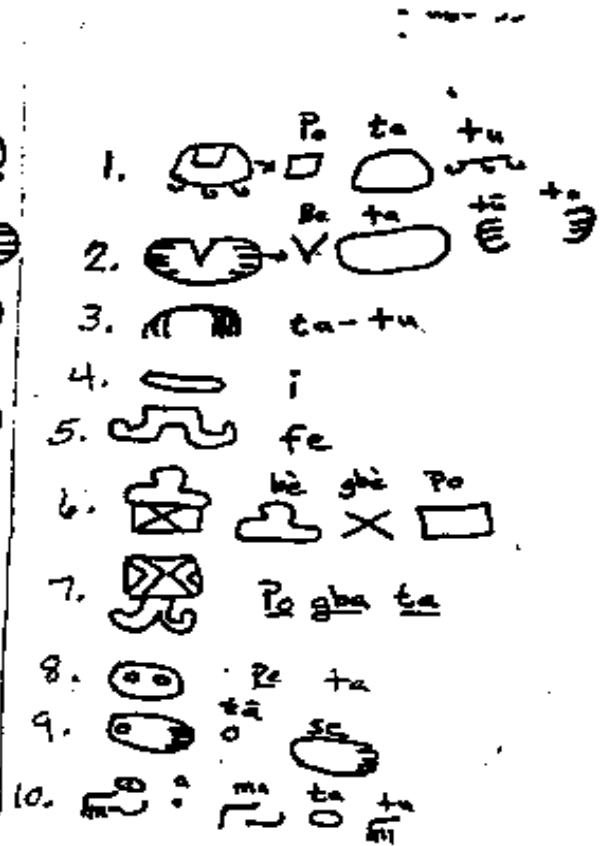 1. Po ta tu
2. Be ta tē ta
3. ta-tu
4. i
5. fe
6. bè gbè Po
7. Po gba ta
8. Pe ta
9. tā se
10. a ma ta tu